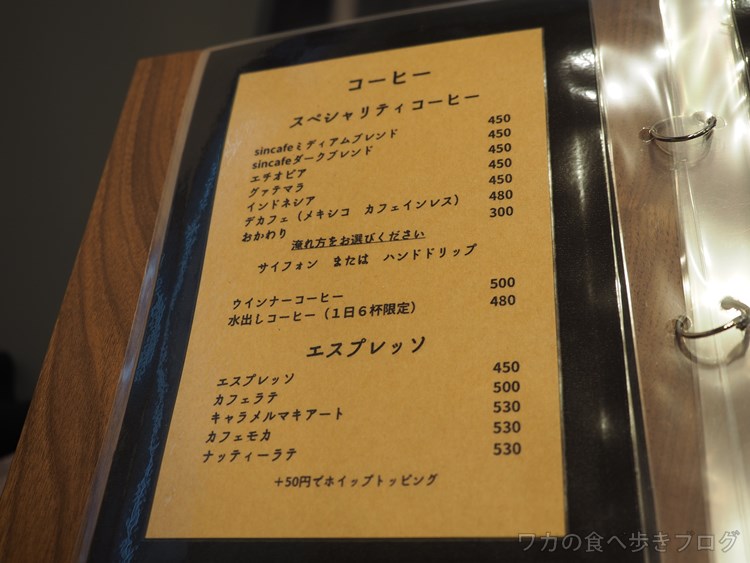 コーヒー
スペシャリティコーヒー
sincafeミディアムブレンド 450
sincafeダークブレンド 450
エチオピア 450
グァテマラ 450
インドネシア 450
デカフェ（メキシコ　カフェインレス） 480
おかわり 300
淹れ方をお選びください
サイフォン　または　ハンドドリップ
ウインナーコーヒー 500
水出しコーヒー（１日６杯限定） 480
エスプレッソ
エスプレッソ 450
カフェラテ 500
キャラメルマキアート 530
カフェモカ 530
ナッティーラテ 530
＋50円でホイップトッピング
ワカの食べ歩きブログ